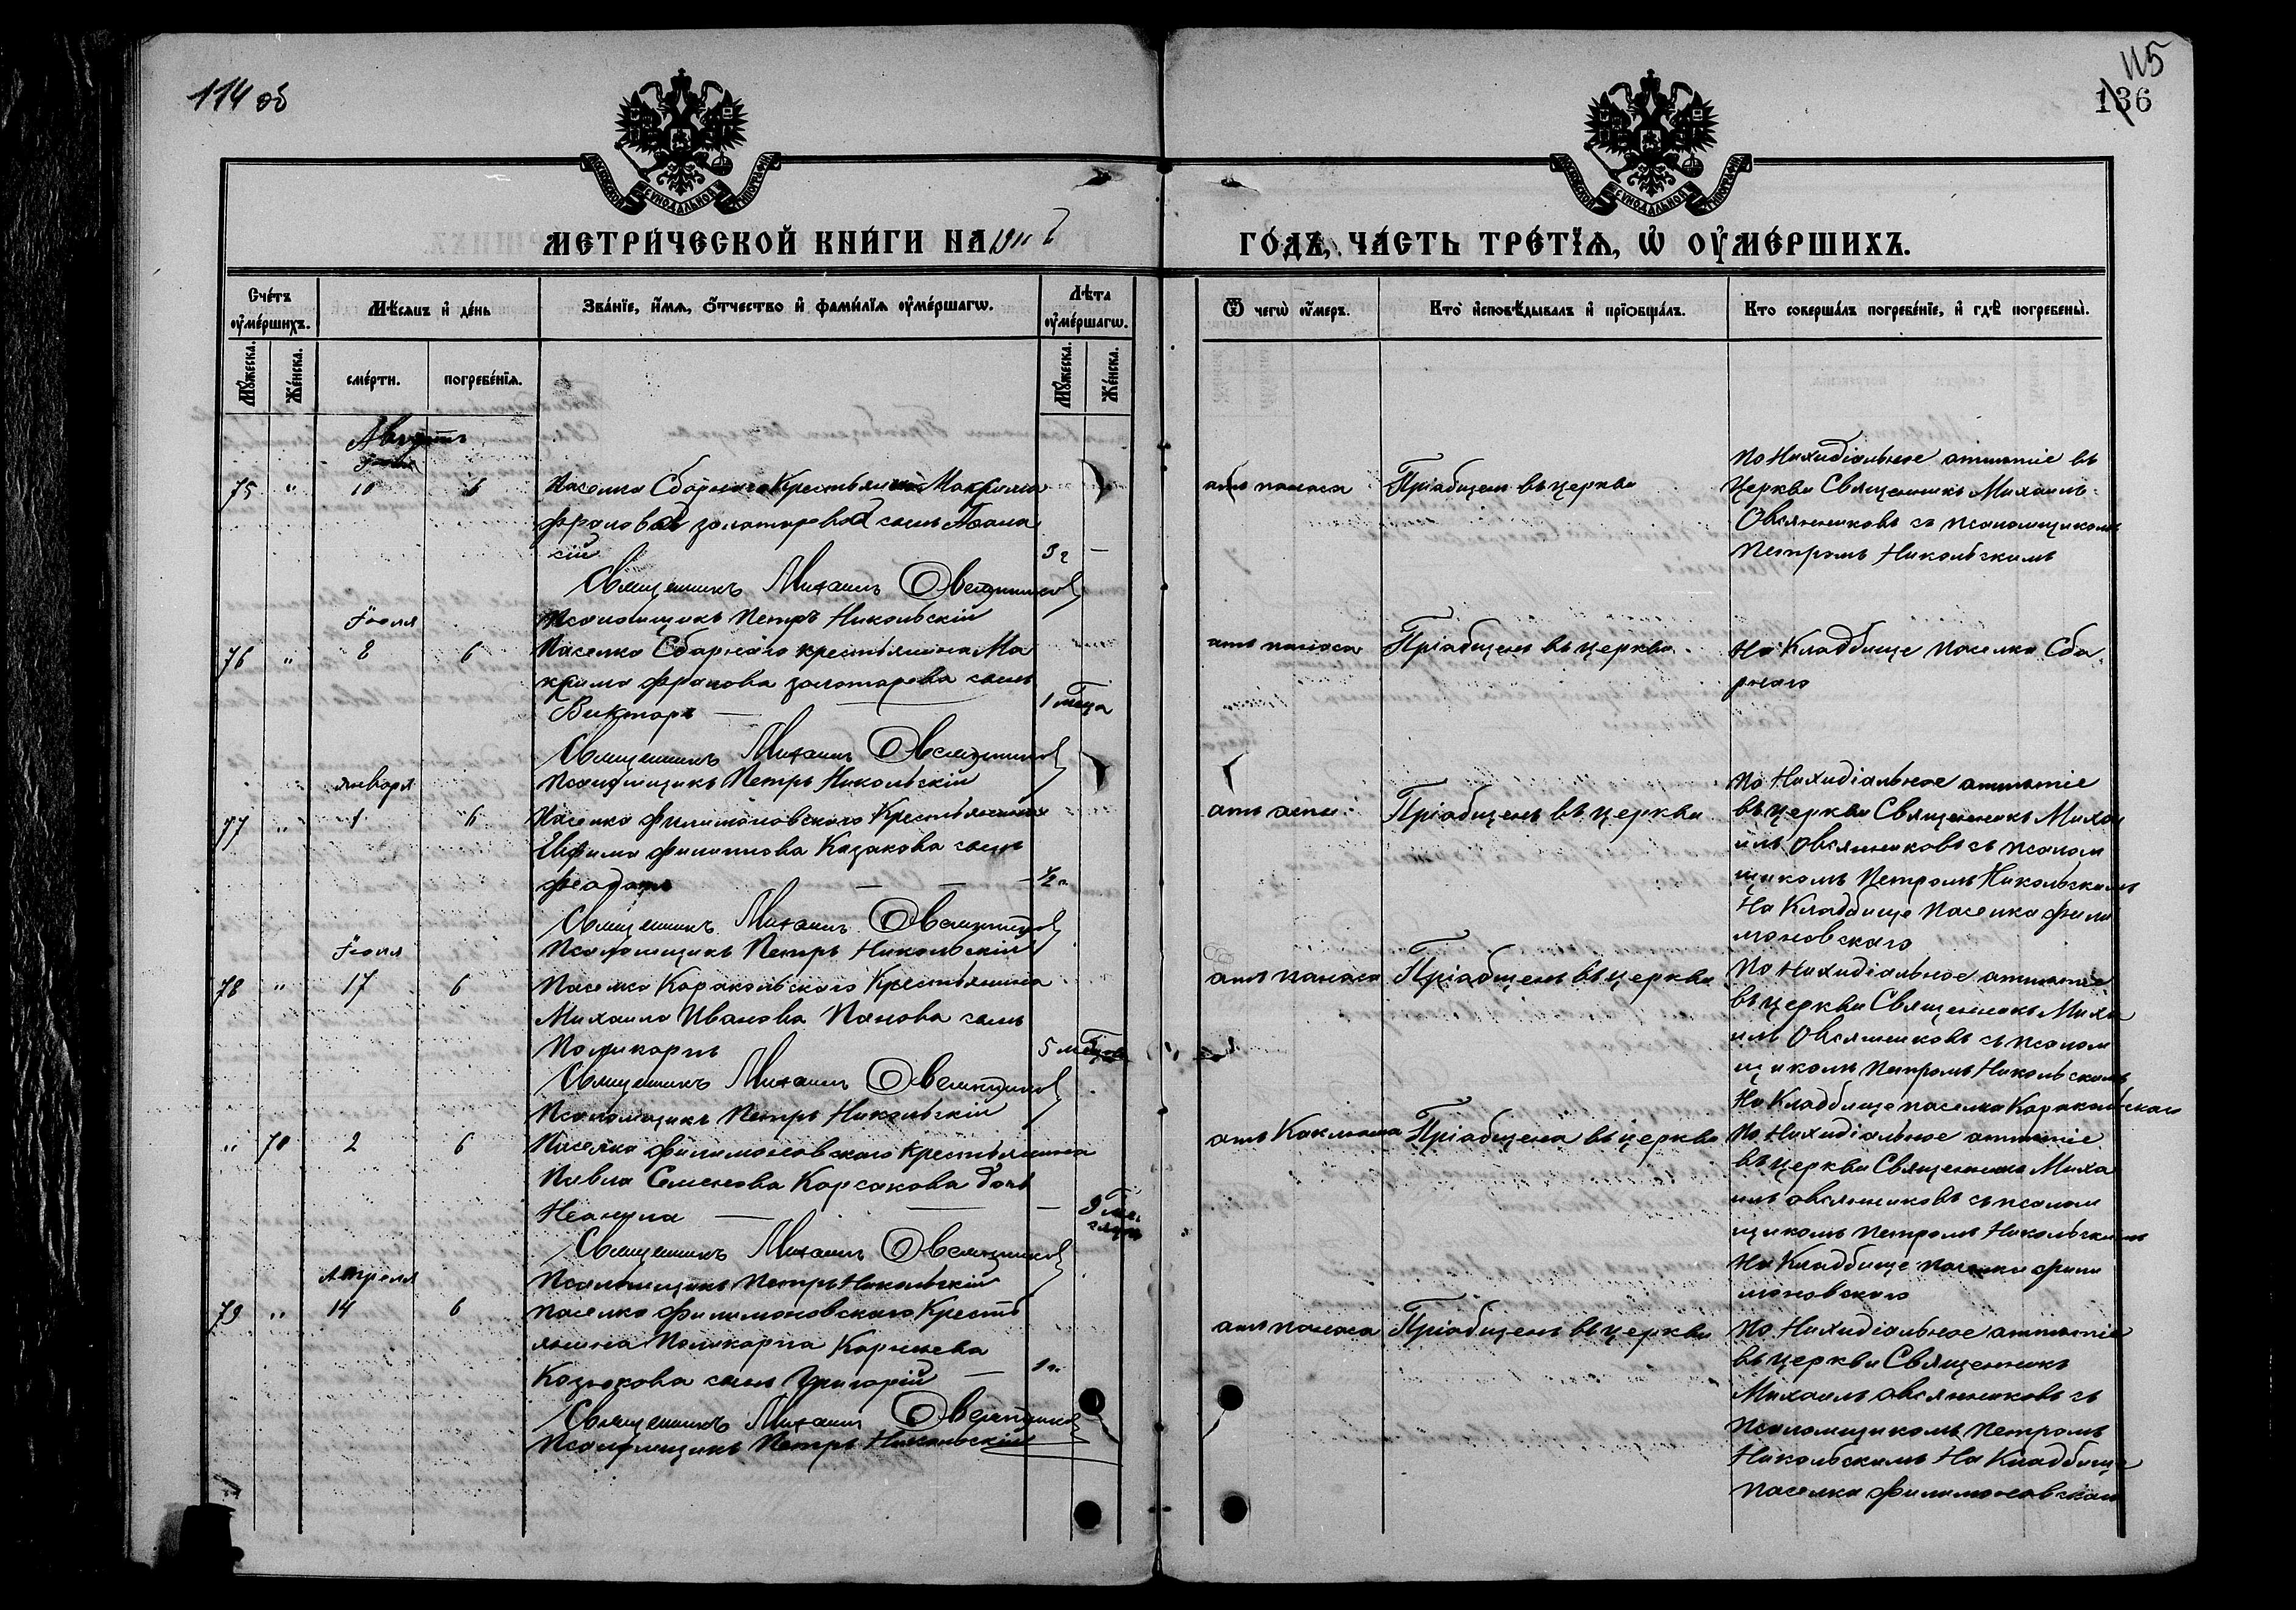 114 об
115
136
МОСКОВСКОЙ СѴНОДАЛЬНОЙ ТИПОГРАФІИ
МОСКОВСКОЙ СѴНОДАЛЬНОЙ ТИПОГРАФІИ
МЕТРИ́ЧЕСКОЙ КНИ́ГИ НА 1911
ГО́ДЪ, ЧА́СТЬ ТРЕ́ТІѦ, Ѡ҆ ОУ҆МЕ́РШИХЪ.
Сче́тъ оу҆ме́ршихъ.
Мѣ́сяцъ и҆ де́нь
Зва́ніе, и҆́мѧ, о҆́тчество и҆ фами́лїѧ оу҆ме́ршагѡ.
Лѣ́та оу҆ме́ршагѡ.
Ѿ чегѡ̀ оу҆́меръ.
Кто̀ и҆сповѣ́дывалъ и҆ прїобща́лъ.
Кто соверша́лъ погребе́нїе, и҆ гдѣ̀ погребены̀.
Му́жеска.
Же́нска.
сме́рти.
погребе́нїѧ.
Му́жеска.
Же́нска.
75 " 10 6 Поселка Сборнаго Крестьянина Макрима
Фролова Золотарева сынъ Афана
сій 3 г —
Священникъ Михаилъ Овсянниковъ
Псаломщикъ Петръ Никольскій
отъ поноса
Пріобщенъ въ церкви
По Нихидіальное отпѣтіе въ
Церкви Священникъ Михаилъ
Овсянниковъ съ псаломщикомъ
Петромъ Никольскимъ
Іюля
76 " 2 6 Поселка Сборнаго крестьянина Ма
крима Фролова Золотарева сынъ
Викторъ — 1 мѣсца
Священникъ Михаилъ Овсянниковъ
Псаломщикъ Петръ Никольскій
отъ поноса
Пріобщенъ въ церкви
На Кладбище поселка Сбо
рнаго
января
77 " 1 6 Поселка Филимоновскаго Крестьянина
Филиппова Казакова сынъ
Феодотъ — ½ г.
Священникъ Михаилъ Овсянниковъ
Псаломщикъ Петръ Никольскій
отъ оспы
Пріобщенъ въ церкви
По Нихидіальное отпѣтіе
въ церкви Священникъ Миха
илъ Овсянниковъ съ псалом
щикомъ Петромъ Никольскимъ
На Кладбище поселка Фили
моновскаго
Іюля
78 " 17 6 Поселка Каракольскаго Крестьянина
Михаила Иванова Попова сынъ
Поликарпъ 5 мѣсцовъ
Священникъ Михаилъ Овсянниковъ
Псаломщикъ Петръ Никольскій
отъ поноса
Пріобщенъ въ церкви
По Нихидіальное отпѣтіе
въ церкви Священникъ Миха
илъ Овсянниковъ съ псалом
щикомъ Петромъ Никольскимъ
На Кладбище поселка Каракольскаго
" 70 2 6 Поселка Филимоновскаго Крестьянина
Павла Семенова Корсакова дочь
Неанила — 9
Священникъ Михаилъ Овсянниковъ
Псаломщикъ Петръ Никольскій
отъ Коклюша
Пріобщена въ церкви
По Нихидіальное отпѣтіе
въ церкви Священникъ Миха
илъ Овсянниковъ съ псалом
щикомъ Петромъ Никольскимъ
На Кладбище поселка Фили
моновскаго
Апреля
79 " 14 6 Поселка Филимоновскаго Кресть
янина Поликарпа Корнѣева
Козюкова сынъ Григорій — 1 г.
Священникъ Михаилъ Овсянниковъ
Псаломщикъ Петръ Никольскій
отъ поноса
Пріобщенъ въ церкви
По Нихидіальное отпѣтіе
въ церкви Священникъ
Михаилъ Овсянниковъ съ
псаломщикомъ Петромъ
Никольскимъ На Кладбище
поселка Филимоновскаго